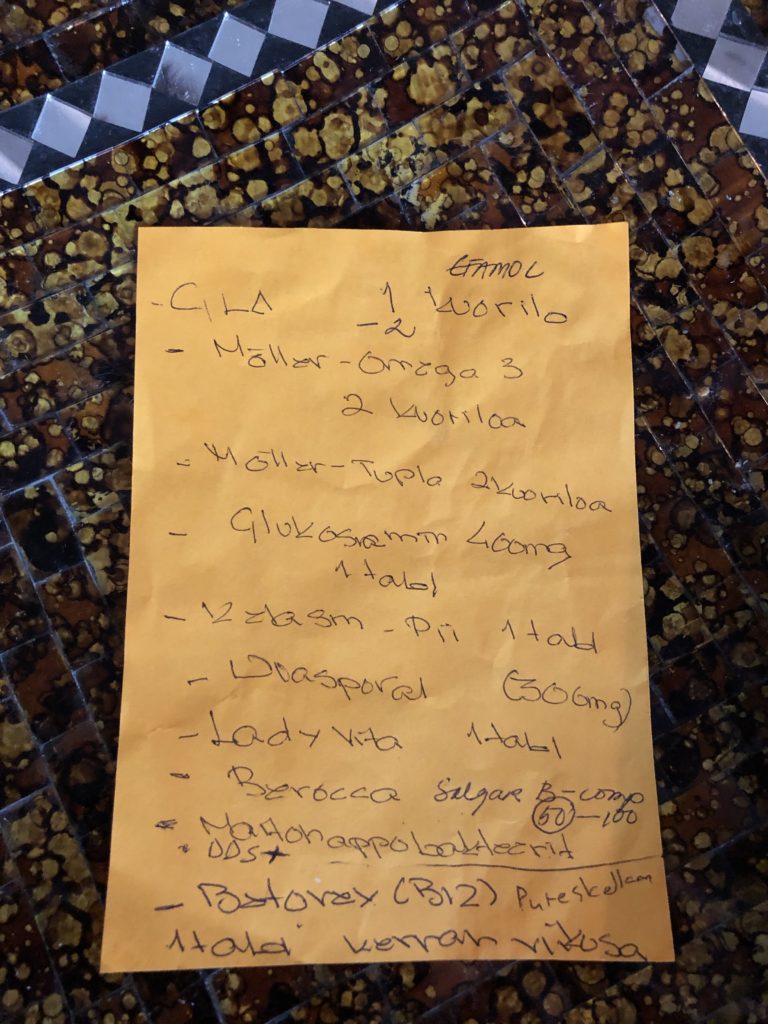 EFAMOL
- GLA 1 kuorilo
-2
- Möller-Omega 3
2 kuoriloa
- Möller-Tupla 2 kuoriloa
- Glukosamin 400mg
1 tabl
- Pii 1 tabl
- Diasporal (300mg)
- Ladyvita 1 tabl
- Berocca Solgar B-comp
50-100
- Maitohappobakteerit
• DDS+
- Betorex (B12) Pureskellaan
1 tabl kerran vikosa